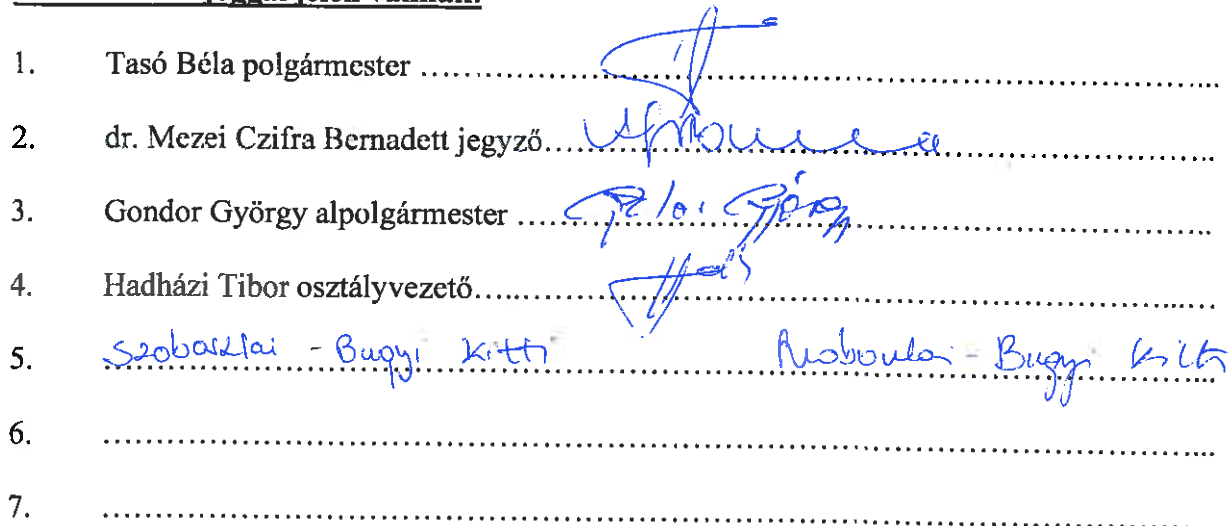 jelen vannak:
1. Tasó Béla polgármester
2. dr. Mezei Czifra Bernadett jegyző
3. Gondor György alpolgármester
4. Hadházi Tibor osztályvezető
5. Szoboszlai - Bugyi Kitti Szoboszlai - Bugyi Kitti
6.
7.